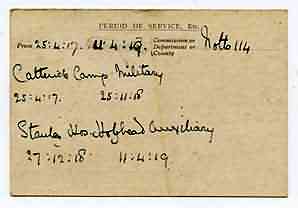 PERIOD OF SERVICE, Etc.
From 25:4:17. 11:4:19. Commission or Department or County Notts 114.
Catterick Camp Military
25:4:17. 25:11:18
Aux­iliary
27:12:18 11:4:19